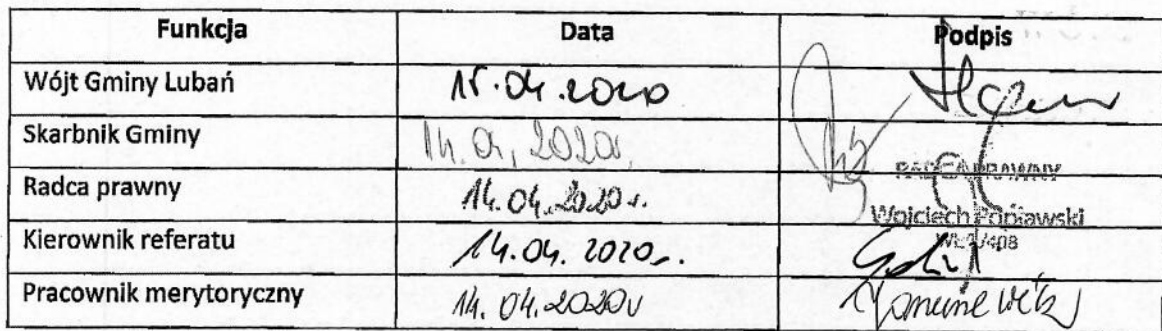 Funkcja Data Podpis
Wójt Gminy Lubań 15.04.2020
Skarbnik Gminy 14.04.2020r.
RADCA PRAWNY
Radca prawny 14.04.2020r.
Wojciech Popławski
Kierownik referatu 14.04.2020r.
Pracownik merytoryczny 14.04.2020r